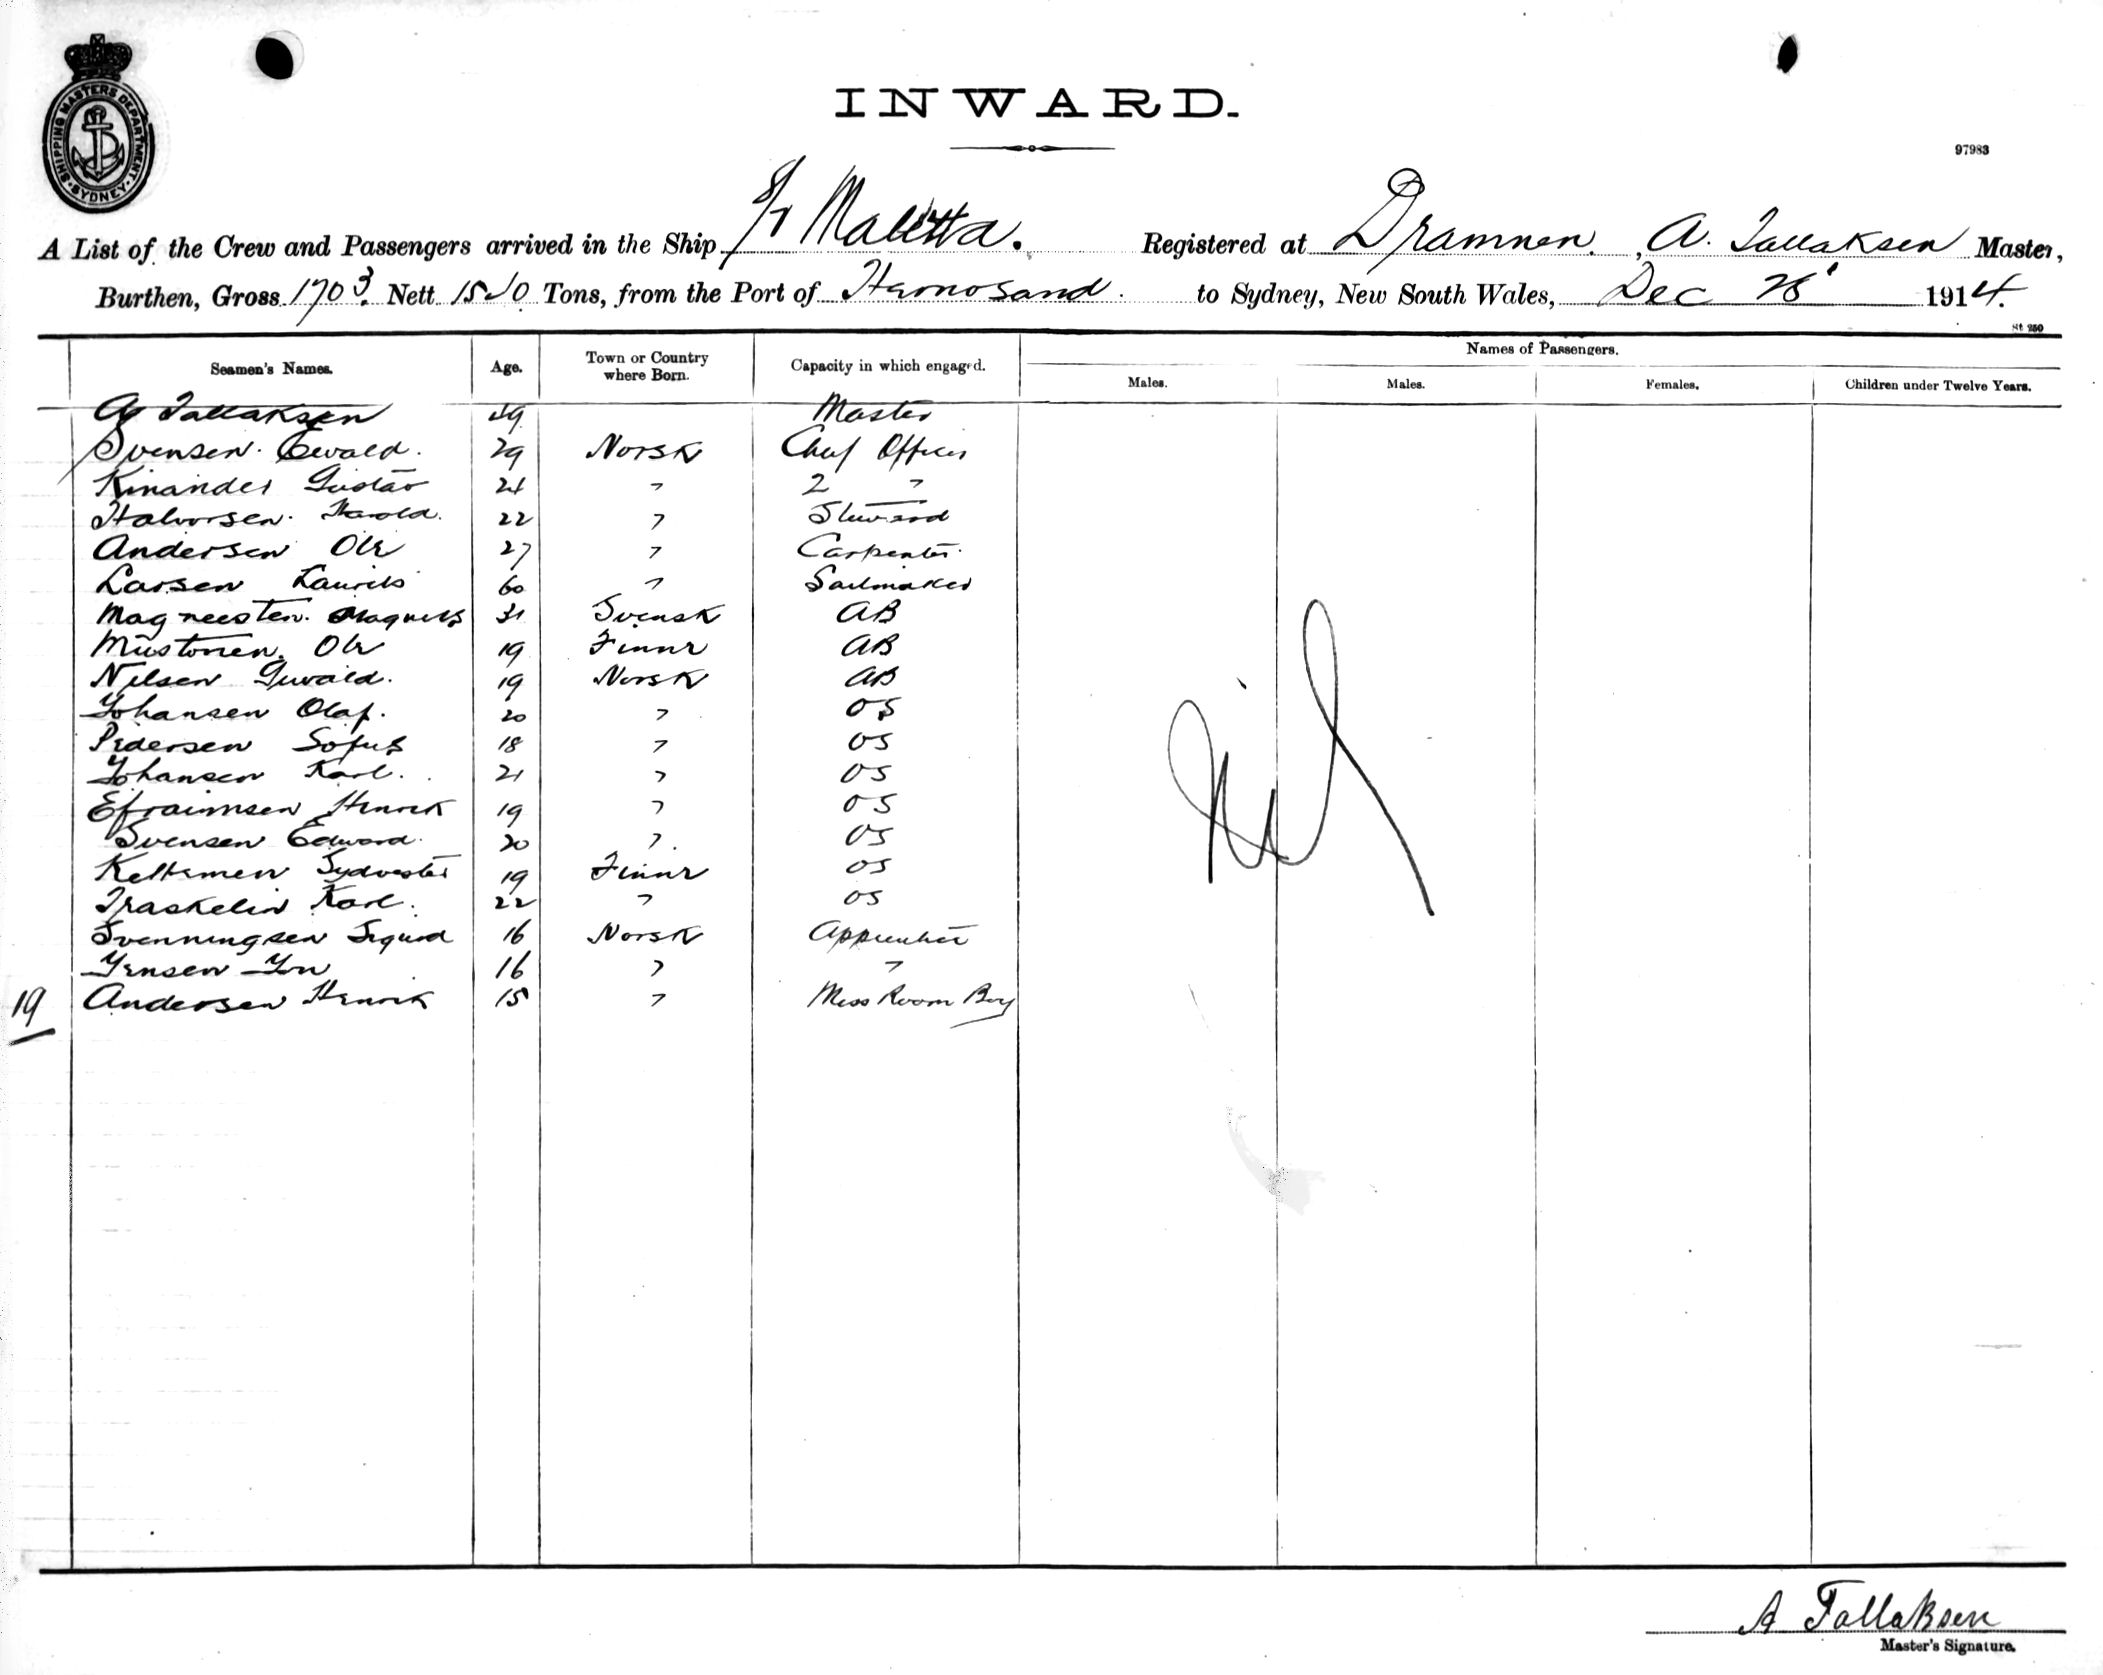 SHIPPING MASTERS DEPARTMENT · SYDNEY ·
INWARD.
97983
A List of the Crew and Passengers arrived in the Ship S/V Maletta. Registered at Drammen, A. Tallaksen Master,
Burthen, Gross 1703 Nett Tons, from the Port of Hernosand to Sydney, New South Wales, Dec 28 1914.
St 250
Seamen's Names. Age. Town or Country where Born. Capacity in which engaged. Names of Passengers.
Males. Males. Females. Children under Twelve Years.
A Tallaksen 49 Master
Svensen. Ewald. 29 Norsk Chief Officer
Kinander Gustav 24 " 2 "
Halvorsen. Harold. 22 " Steward
Andersen Ole 27 " Carpenter
Larsen Laurits 60 " Sailmaker
Magneesten. Magnus 31 Svensk AB
Mustonen. Ole 19 Finne AB
Nilsen 19 Norsk AB
Johansen Olaf. 20 " OS
Pedersen Sofus 18 " OS
Johansen Karl. 21 " OS
Efraimsen Henrik 19 " OS
Svensen Edward. 20 " OS
Sydvester 19 Finne OS
Traskelin Karl. 22 " OS
Svenningsen Sigurd 16 Norsk Apprentice
Jensen Jon 16 " "
19 Andersen Henrik 15 " Mess Room Boy
Nil
A Tallaksen
Master's Signature.